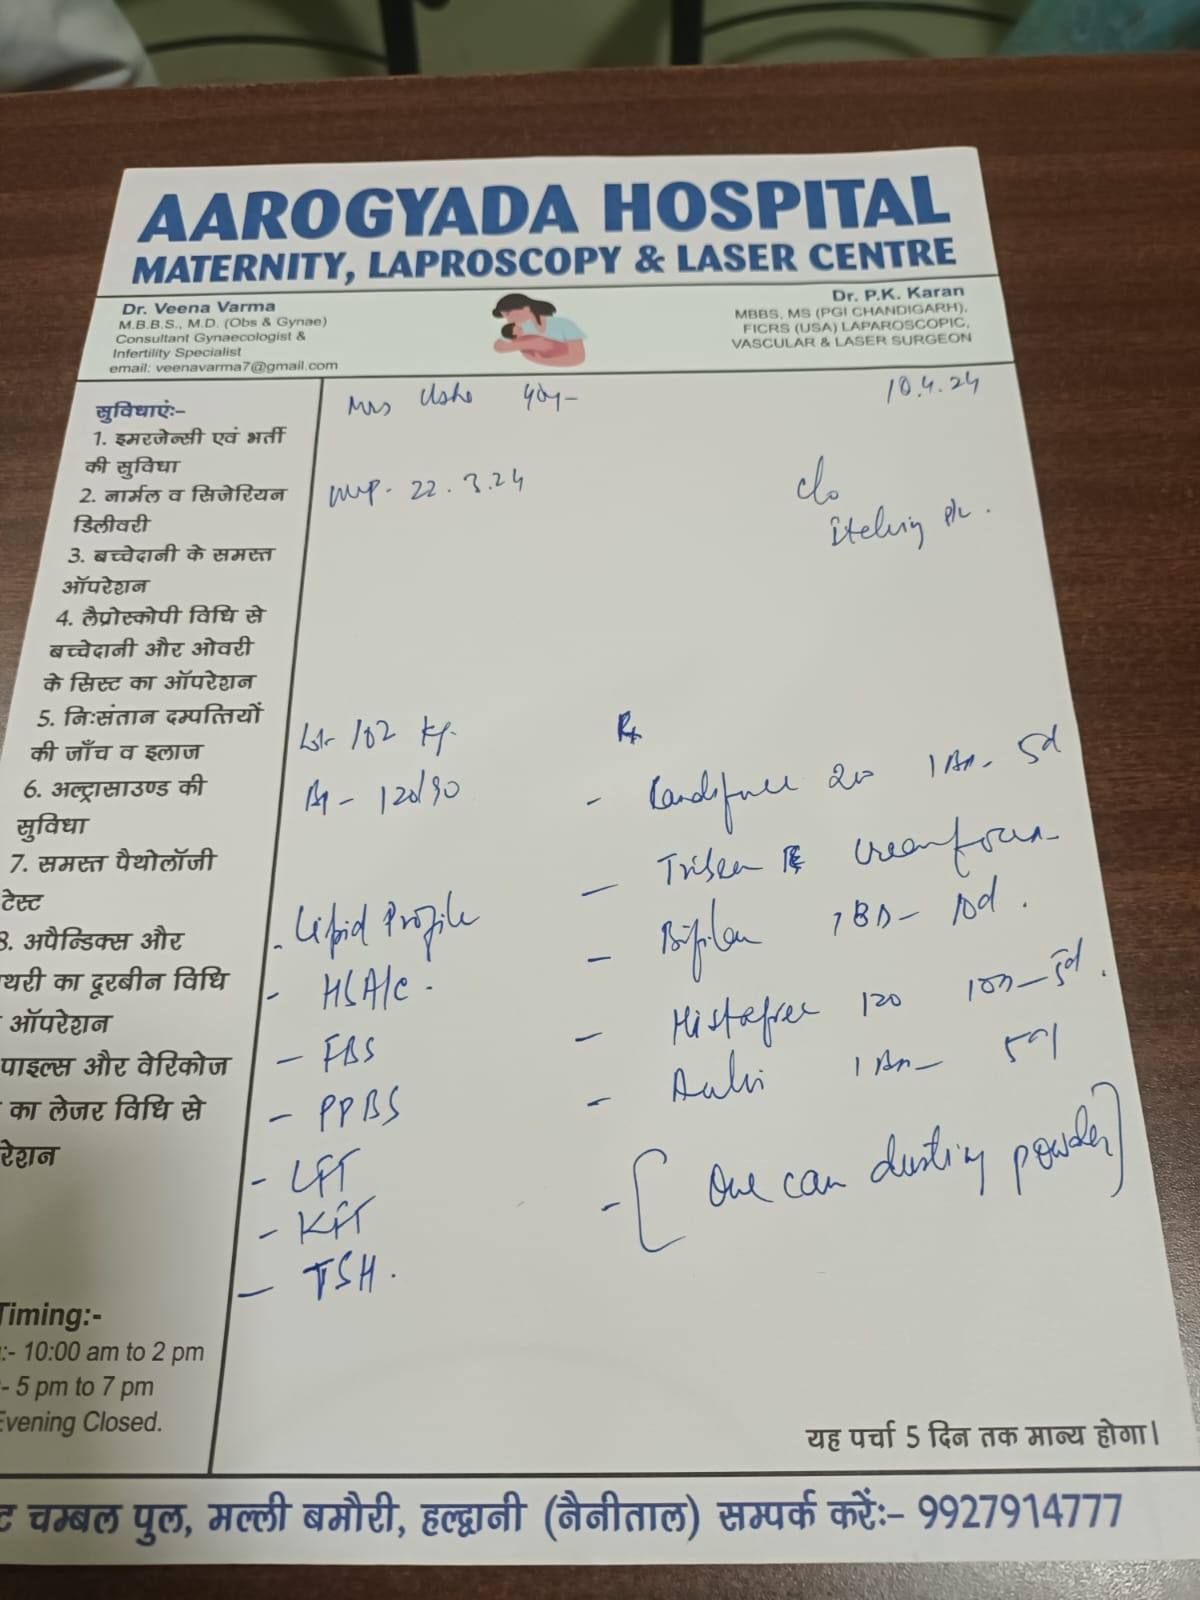 AAROGYADA HOSPITAL
MATERNITY, LAPROSCOPY & LASER CENTRE
Dr. Veena Varma
M.B.B.S., M.D. (Obs & Gynae)
Consultant Gynaecologist &
Infertility Specialist
email: veenavarma7@gmail.com
Dr. P.K. Karan
MBBS, MS (PGI CHANDIGARH),
FICRS (USA) LAPAROSCOPIC,
VASCULAR & LASER SURGEON
सुविधाएं:-
1. इमरजेन्सी एवं भर्ती
की सुविधा
2. नार्मल व सिजेरियन
डिलीवरी
3. बच्चेदानी के समस्त
ऑपरेशन
4. लैप्रोस्कोपी विधि से
बच्चेदानी और ओवरी
के सिस्ट का ऑपरेशन
5. निःसंतान दम्पत्तियों
की जाँच व इलाज
6. अल्ट्रासाउण्ड की
सुविधा
7. समस्त पैथोलॉजी
टेस्ट
8. अपैन्डिक्स और
थरी का दूरबीन विधि
ऑपरेशन
पाइल्स और वेरिकोज
का लेजर विधि से
रेशन
Timing:-
:- 10:00 am to 2 pm
- 5 pm to 7 pm
Evening Closed.
Mrs Usha 40y-
10.4.24
LMP- 22.3.24
c/o
Itching
Wt- 102 Kg.
BP- 120/90
- Lipid Profile
- FBS
- PPBS
- LFT
- KFT
- TSH.
Rx
- 20 1 BD- 5d
- 1 BD- 10d.
- Histafree 120 1 OD- 5d.
- 5d
- [One can dusting powder]
यह पर्चा 5 दिन तक मान्य होगा।
ट चम्बल पुल, मल्ली बमौरी, हल्द्वानी (नैनीताल) सम्पर्क करें:- 9927914777